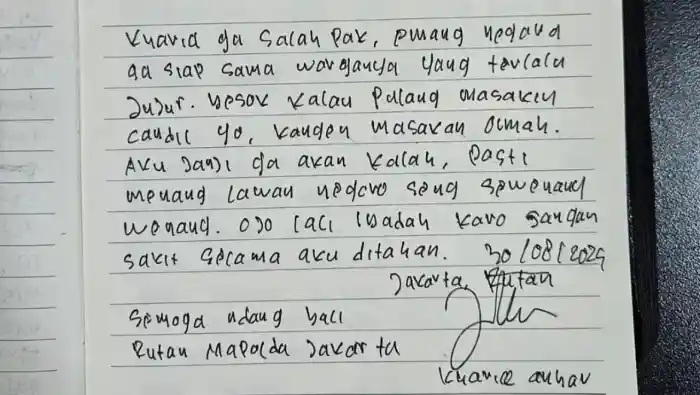 Kharid ga salah Pak, emang negara
ga siap sama warganya yang terlalu
jujur. besok kalau pulang masakin
candil yo, kangen masakan rumah.
Aku janji ga akan kalah, pasti
menang lawan negoro seng sewenang
wenang. Ojo lali ibadah karo jangan
sakit selama aku ditahan. 30/08/2025
Jakarta, Rutan
Semoga ndang bali
Rutan Mapolda Jakarta
Kharid anhar